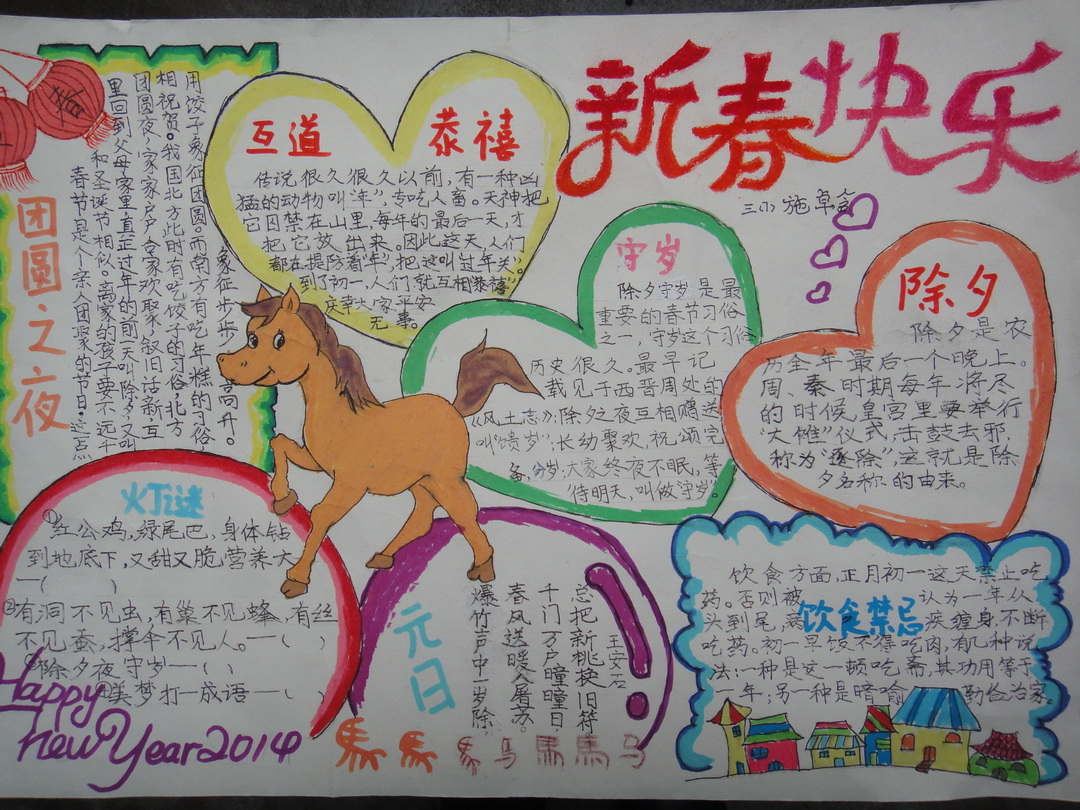 新春快乐
三(1)施卓言
春
团圆之夜
春节是个亲人团聚的节日。这点
和圣诞节相似。离家的孩子要不远千
里回到父母家里。真正过年的前一天叫除夕,又叫
团圆夜,家家户户合家欢聚、叙旧话新、互
相祝贺。我国北方此时有吃饺子的习俗,北方
用饺子象征团圆。而南方有吃年糕的习俗,
象征步步高高升。
互道 恭禧
传说很久很久以前,有一种凶
猛的动物叫“年”,专吃人畜。天神把
它囚禁在山里,每年的最后一天,才
把它放出来。因此这天,人们
都在提防着“年”,把这叫“过年关”。
到了初一,人们就互相恭禧
庆幸大家平安
无事。
守岁
除夕守岁是最
重要的春节习俗
之一,守岁这个习俗
历史很久。最早记
载见于西晋周处的
《风土志》:除夕之夜互相赠送
叫“馈岁”;长幼聚欢,祝颂完
备,分岁;大家终夜不眠,等
待明天,叫做“守岁”。
除夕
除夕是农
历全年最后一个晚上。
周、秦时期每年将尽
的时候,皇宫里要举行
“大傩”仪式,击鼓去邪,
称为“逐除”,这就是除
夕名称的由来。
灯谜
①红公鸡,绿尾巴,身体钻
到地底下,又甜又脆营养大
—( )
②有洞不见虫,有巢不见蜂,有丝
不见蚕,撑伞不见人。—( )
③除夕夜守岁—( )
④美梦打一成语—( )
Happy
New Year 2014
元日
王安石
爆竹声中一岁除,
春风送暖入屠苏。
千门万户曈曈日,
总把新桃换旧符
!
馬馬馬马馬馬马
饮食禁忌
饮食方面,正月初一这天禁止吃
药。否则被 认为一年从
头到尾, 疾缠身,不断
吃药。初一早饭不得吃肉,有几种说
法:一种是这一顿吃斋,其功用等于
一年;另一种是暗喻 勤俭治家。